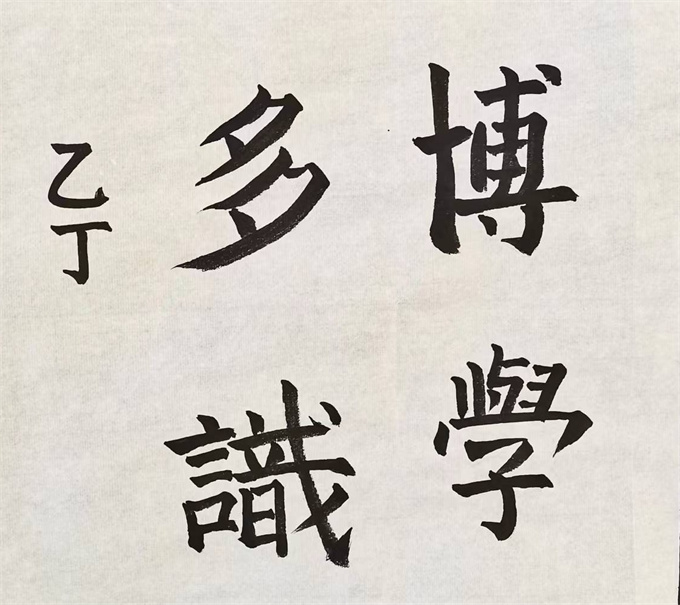 博學
多識
乙丁